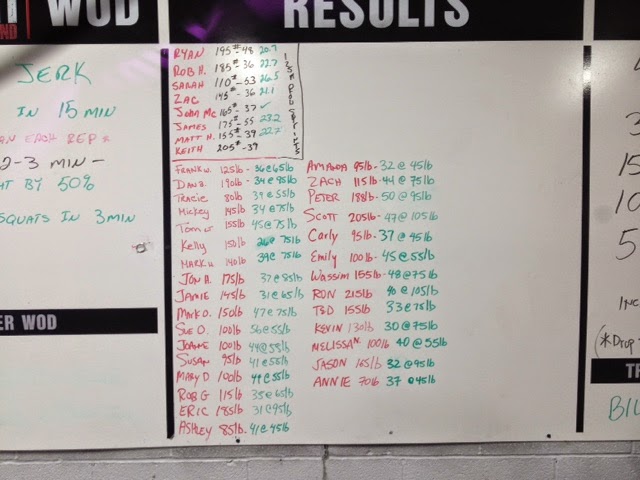 WOD
JERK
IN 15 MIN
EACH REP *
2-3 MIN -
BY 50%
SQUATS IN 3 MIN
WOD
RESULTS
RYAN 195# - 48 20.7
ROB H. 185# - 36 22.7
SARAH 110# - 53 26.5
ZAC 145# - 36 21.1
JOHN MC 165# - 37 ✓
JAMES 175# - 55 23.2
MATT H. 155# - 39 22.7
KEITH 205# - 39
FRANK W. 125lb - 36@65lb
DAN B. 190lb - 34@95lb
TRACIE 80lb 39@55lb
MICKEY 145lb 34@75lb
TOM 155lb 45@75lb
KELLY 150lb 26@75lb
MARK H. 140lb 39@75lb
JON H. 175lb 37@85lb
JAMIE 145lb 31@65lb
MARK O. 150lb 47@75lb
SUE O. 100lb 56@55lb
JOANE 100lb 44@55lb
SUSAN 95lb 41@55lb
MARY D 100lb 44@55lb
ROB G 115lb 35@65lb
ERIC 185lb 31@95lb
ASHLEY 85lb 41@45lb
AMANDA 95lb - 32@45lb
ZACH 115lb 44@75lb
PETER 188lb - 50@95lb
SCOTT 205lb - 47@105lb
Carly 95lb - 37@45lb
Emily 100lb - 45@55lb
Wassim 155lb - 48@75lb
RON 215lb 40@105lb
TBD 155lb 33@75lb
KEVIN 130lb 30@75lb
MELISSA 100lb 40@55lb
JASON 165lb 32@95lb
ANNIE 70lb 37@45lb
15
10
5
INC
(*DROP